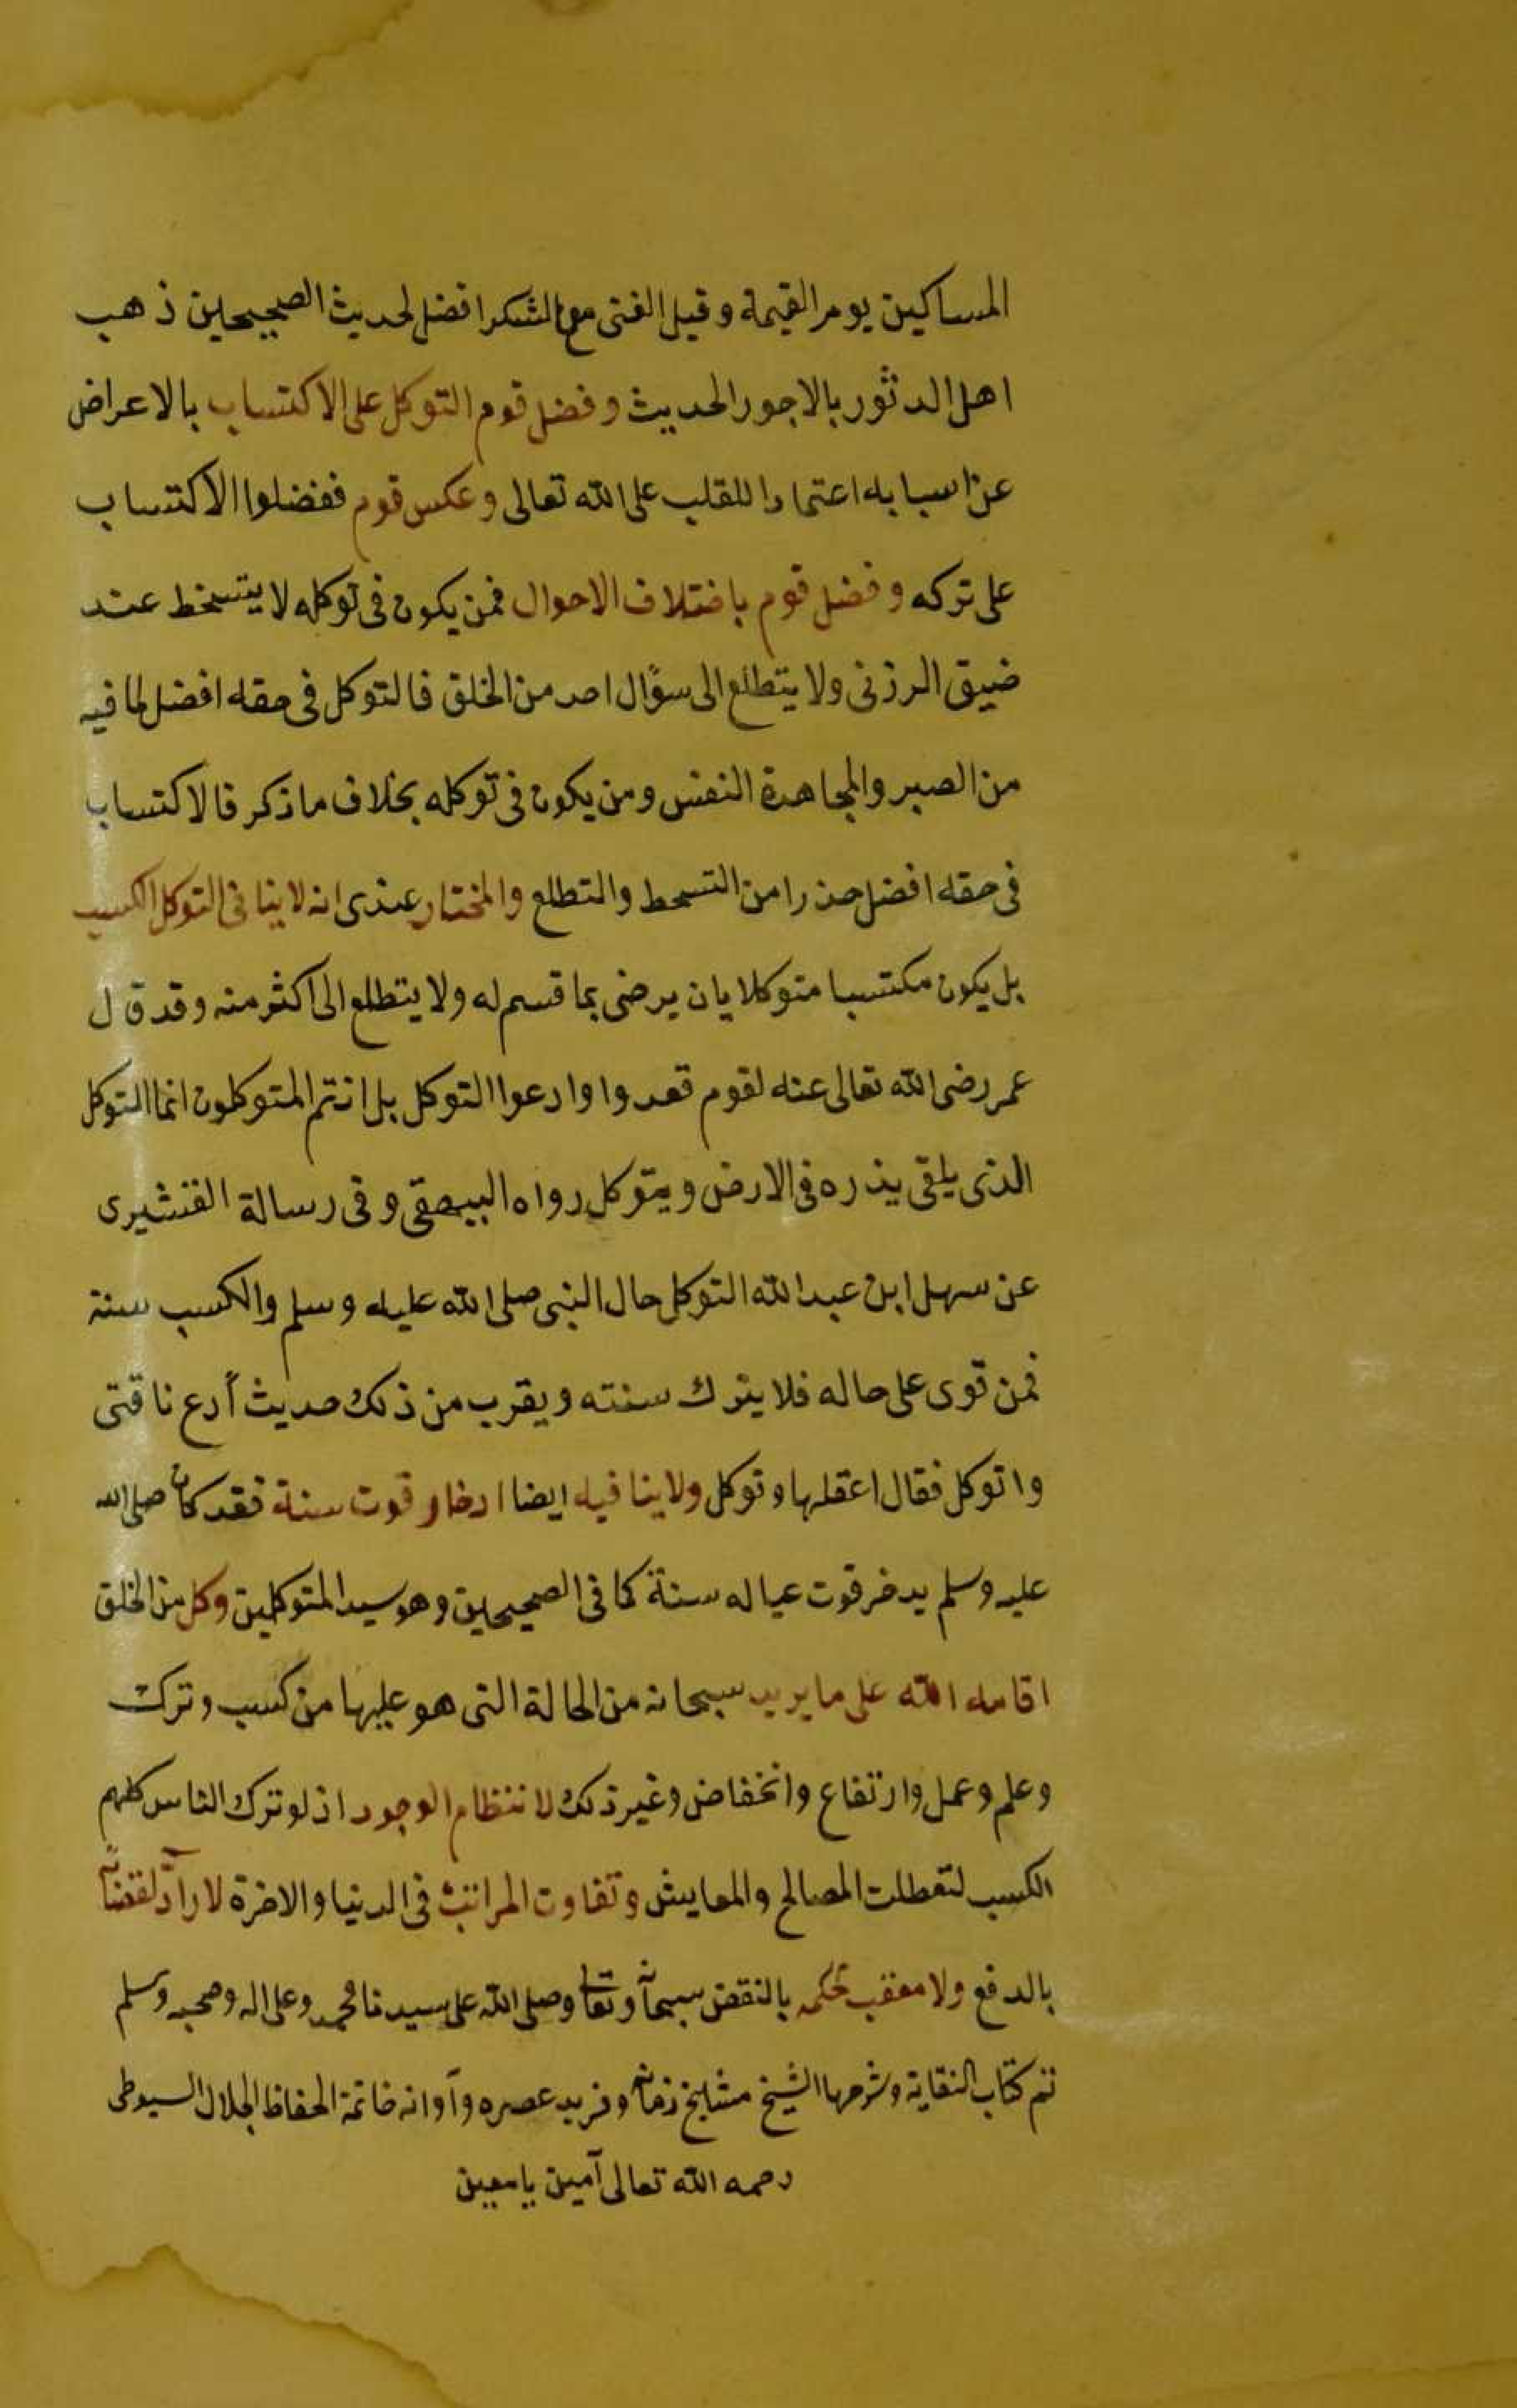 المساكين يوم القيمة وقيل الغنى مع الشكر افضل لحديث الصحيحين ذهب
اهل الدثور بالاجور الحديث وفضل قوم التوكل على الاكتساب بالاعراض
عن اسبابه اعتمادا للقلب على الله تعالى وعكس قوم ففضلوا الاكتساب
على تركه وفضل قوم باختلاف الاحوال فمن يكون فى توكله لا يتسخط عند
ضيق الرزق ولا يتطلع الى سؤال احد من الخلق فالتوكل فى حقه افضل لما فيه
من الصبر والمجاهدة النفس ومن يكون فى توكله بخلاف ما ذكر فالاكتساب
فى حقه افضل حذرا من التسخط والتطلع والمختار عندى انه لا ينافى التوكل الكسب
بل يكون مكتسبا متوكلا بان يرضى بما قسم له ولا يتطلع الى اكثر منه وقد قال
عمر رضى الله تعالى عنه لقوم قعدوا وادعوا التوكل بل انتم المتوكلون انما التوكل
الذى يلقى بذره فى الارض ويتوكل رواه البيهقى وفى رسالة القشيرى
عن سهل ابن عبد الله التوكل حال النبى صلى الله عليه وسلم والكسب سنة
فمن قوى على حاله فلا يترك سنته ويقرب من ذلك حديث أدع ناقتى
واتوكل فقال اعقلها وتوكل ولا ينافيه ايضا ادخار قوت سنة فقد كان صلى الله
عليه وسلم يدخر قوت عياله سنة كما فى الصحيحين وهو سيد المتوكلين وكل من الخلق
اقامه الله على ما يريد سبحانه من الحالة التى هو عليها من كسب وترك
وعلم وعمل وارتفاع وانخفاض وغير ذلك لانتظام الوجود اذ لو ترك الناس كلهم
الكسب لتعطلت المصالح والمعايش وتفاوت المراتب فى الدنيا والاخرة لا رآدّ لقضائه
بالدفع ولا معقب لحكمه بالنقض سبحانه وتعالى وصلى الله على سيدنا محمد وعلى اله وصحبه وسلم
تم كتاب النقاية وشرحها الشيخ مشايخ زمانه وفريد عصره وآوانه خاتمة الحفاظ الجلال السيوطى
رحمه الله تعالى آمين يا معين